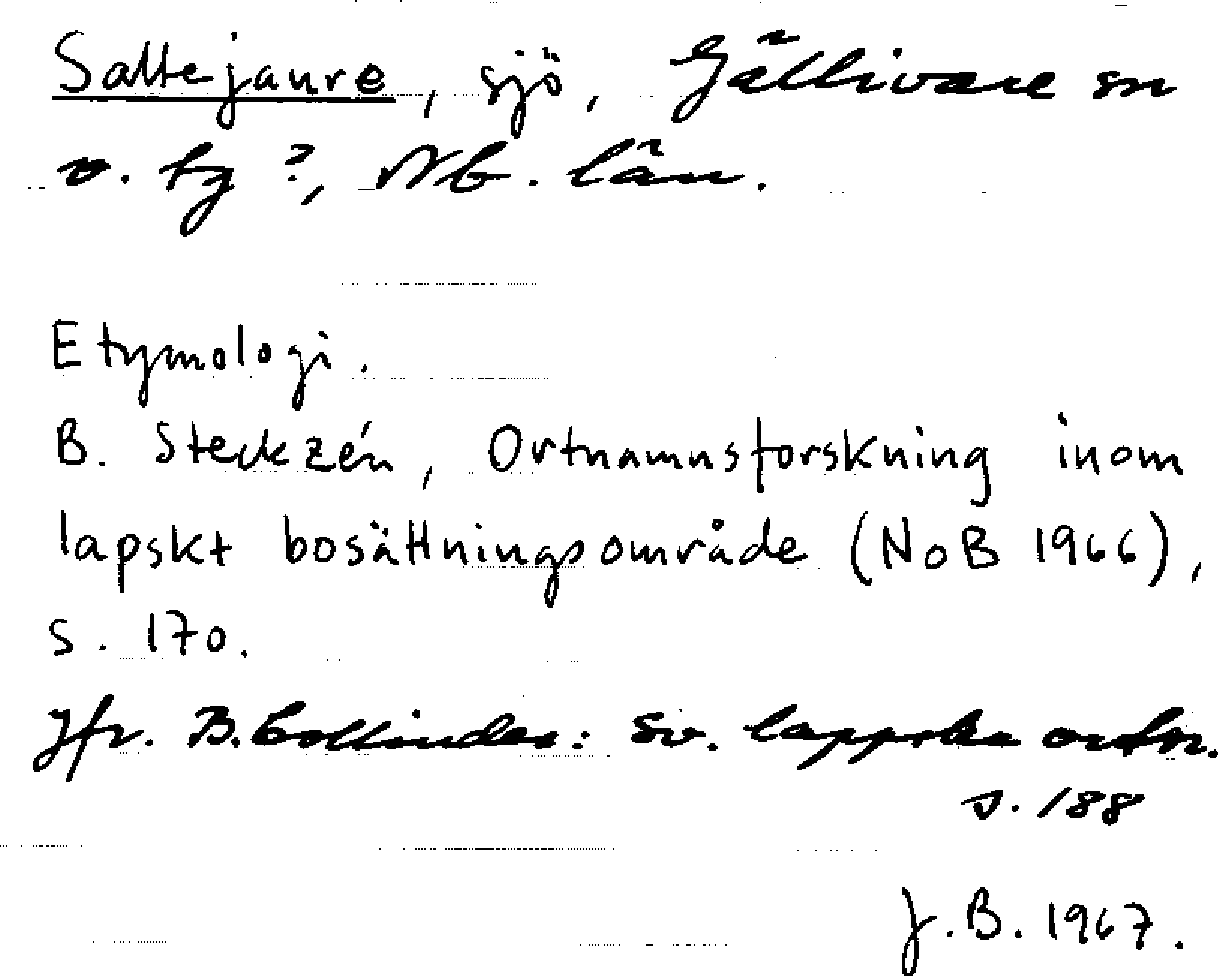 Saltejaure, sjö, Gällivare sn
o. tg ?, Nb. län.
Etymologi.
B. Steckzén, Ortnamnsforskning inom
lapskt bosättningsområde (NoB 1966),
s. 170.
Jfr. B. Collinder: Sv. lappska ortn.
s. 188
J.B. 1967.